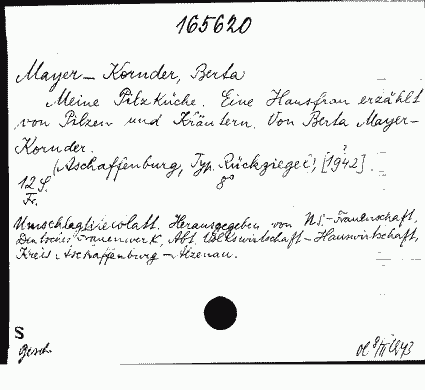 165620
Mayer-Kornder, Berta
Meine Pilzküche. Eine Hausfrau erzählt
von Pilzen und Kräutern. Von Berta Mayer-
Kornder.
(Aschaffenburg, Typ. Rückziegel, [1942].
12 S. 8°
Fr.
Umschlagtitelblatt. Herausgegeben von NS.-Frauenschaft,
Deutsches Frauenwerk, Abt. Volkswirtschaft-Hauswirtschaft,
Kreis Aschaffenburg-Alzenau.
S
Gesch.